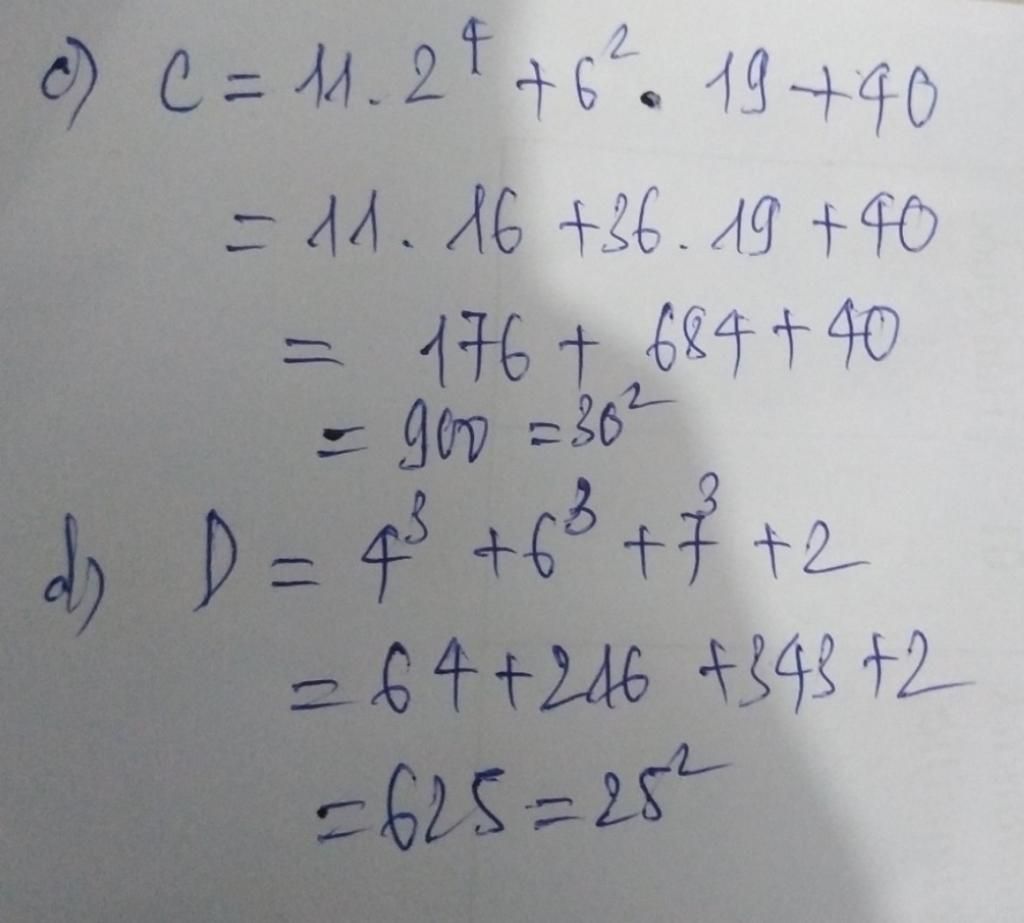 c) C = 11 . 2⁴ + 6² . 19 + 40
= 11 . 16 + 36 . 19 + 40
= 176 + 684 + 40
= 900 = 30²
d) D = 4³ + 6³ + 7³ + 2
= 64 + 216 + 343 + 2
= 625 = 25²